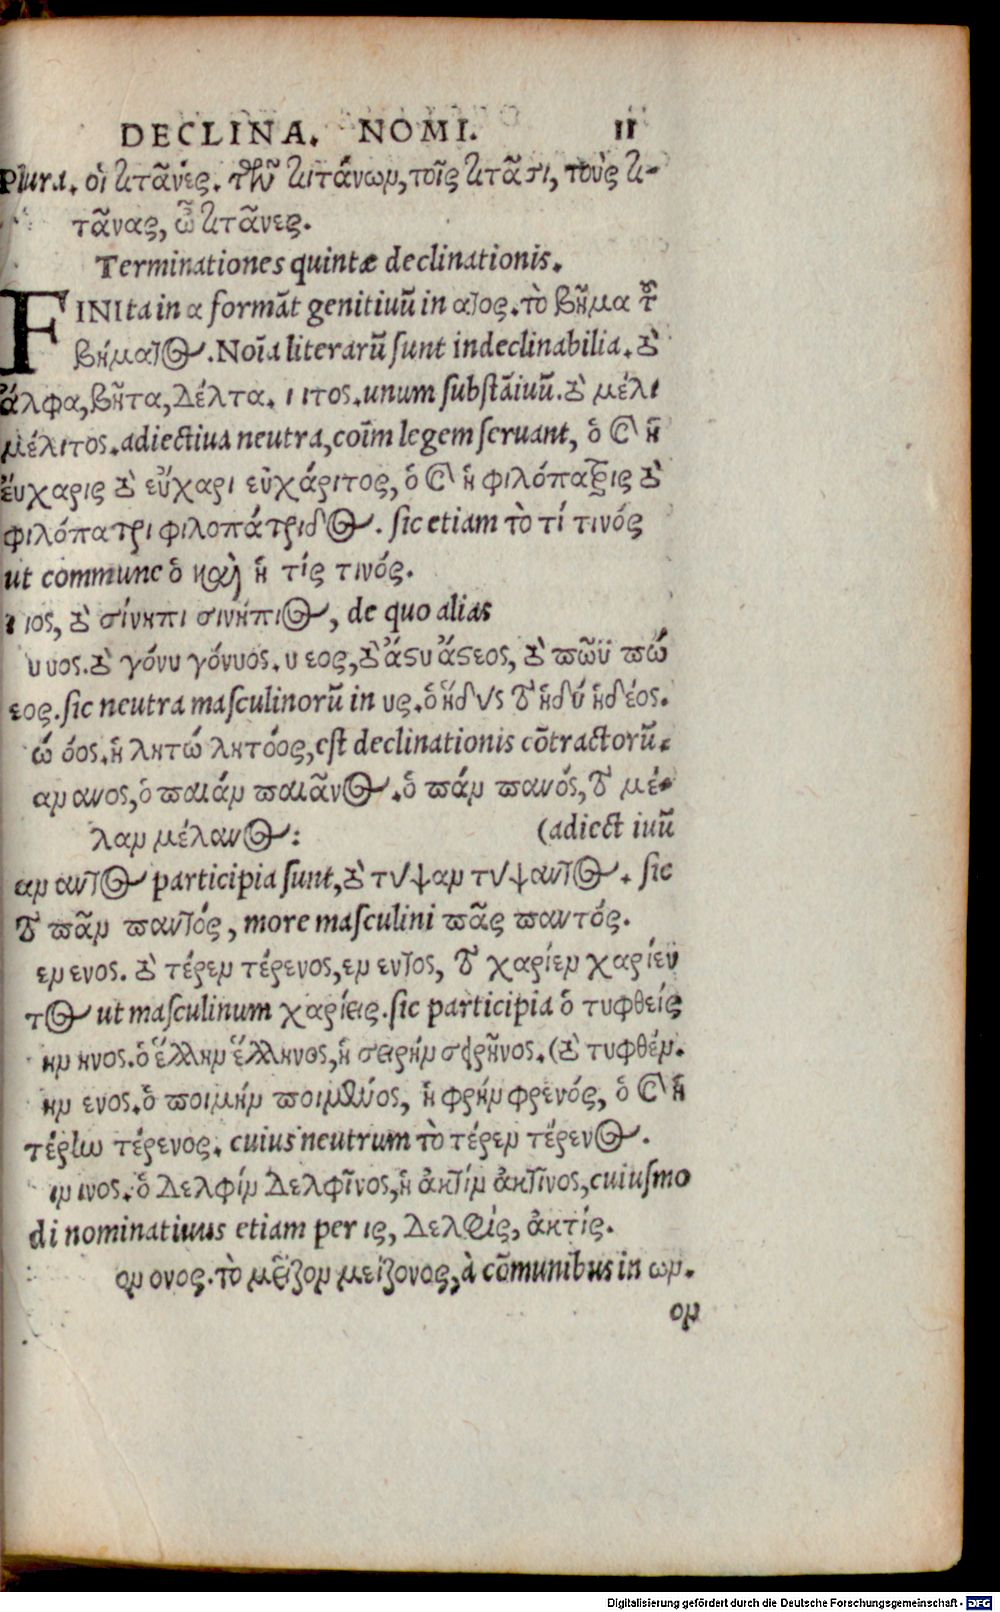 DECLINA. NOMI. 11
Plura. οἱ τιτᾶνές. τῶν τιτάνων, τοῖς τιτᾶσι, τοὺς τι-
τᾶνας, ὦ τιτᾶνες.
Terminationes quintæ declinationis.
FINIta in α formāt genitiuū in ατος. τὸ βῆμα τοῦ
βήματος. Noīa literarū sunt indeclinabilia. τὸ
ἄλφα, βῆτα, δέλτα. ι ιτος. unum substāiuū. τὸ μέλι
μέλιτος. adiectiua neutra, coīm legem seruant, ὁ καὶ ἡ
ἔυχαρις τὸ εὔχαρι εὐχάριτος, ὁ καὶ ἡ φιλόπατρις τὸ
φιλόπατρι φιλοπάτριδος. sic etiam τὸ τί τινός
ut commune ὁ καὶ ἡ τίς τινός.
ι ιος, τὸ σίνηπι σινήπιος, de quo alias
υ υος. τὸ γόνυ γόνυος. υ εος, τὸ ἄστυ ἄστεος, τὸ πῶϋ πώ
εος. sic neutra masculinorū in υς. ὁ ἡδὺς τὸ ἡδύ ἡδέος.
ώ όος. ἡ λητώ λητόος, est declinationis cōtractorū.
αν ανος, ὁ παιάν παιᾶνος. ὁ πάν πανός, τὸ μέ-
λαν μέλανος: (adiect iuū
αν αντος participia sunt, τὸ τύψαν τύψαντος. sic
τὸ πᾶν παντός, more masculini πᾶς παντός.
εν ενος. τὸ τέρεν τέρενος, εν εντος, τὸ χαρίεν χαρίεν
τος ut masculinum χαρίεις. sic participia ὁ τυφθείς
ην ηνος. ὁ ἕλλην ἕλληνος, ἡ σειρήν σειρῆνος. (τὸ τυφθέν.
ην ενος. ὁ ποιμήν ποιμένος, ἡ φρήν φρενός, ὁ καὶ ἡ
τέρην τέρενος. cuius neutrum τὸ τέρεν τέρενος.
ιν ινος. ὁ δελφίν δελφῖνος, ἡ ἀκτίν ἀκτῖνος, cuiusmo
di nominatiuus etiam per ις, δελφίς, ἀκτίς.
ον ονος. τὸ μεῖζον μείζονος, à cōmunibus in ων.
ον
Digitalisierung gefördert durch die Deutsche Forschungsgemeinschaft - DFG